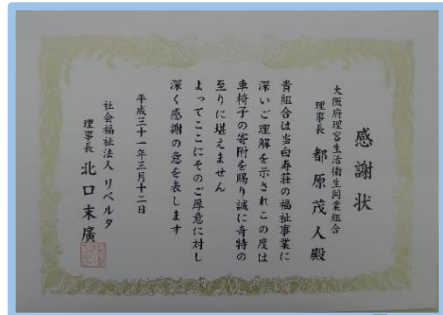 感謝状
大阪府理容生活衛生同業組合
理事長 都原茂人殿
貴組合は当白寿荘の福祉事業に
深いご理解を示されこの度は
車椅子の寄附を賜り誠に奇特の
至りに堪えません
よってここにそのご厚意に対し
深く感謝の意を表します
平成三十一年三月十二日
社会福祉法人 リベルタ
理事長 北口末廣